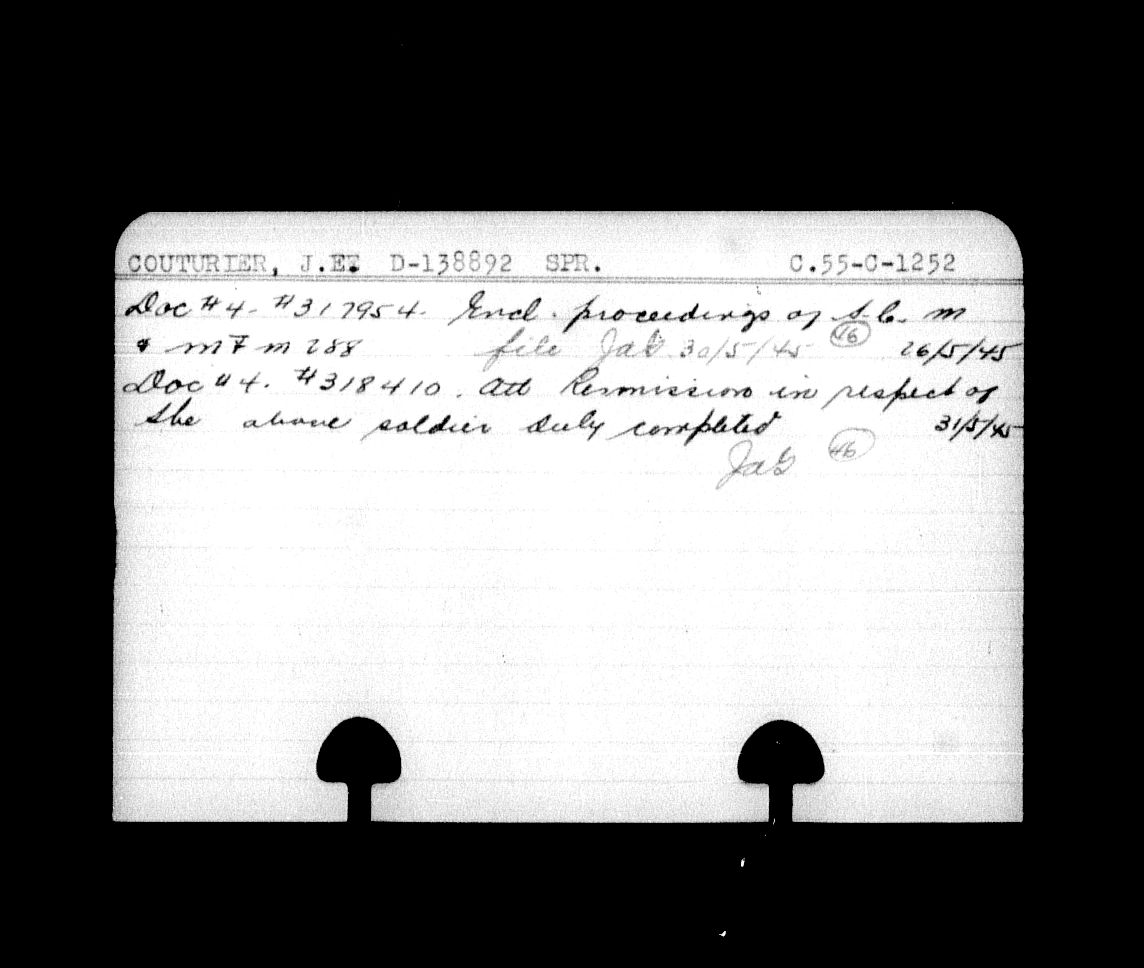 COUTURIER, J.E. D-138892 SPR. C.55-C-1252
Doc #4. #317954. Encl. proceedings of S.C. m
& m F m 288 file JaG 30/5/45 (16) 26/5/45
Doc #4. #318410. att Remission in respect of
the above soldier duly completed 31/5/45
JaG (46)